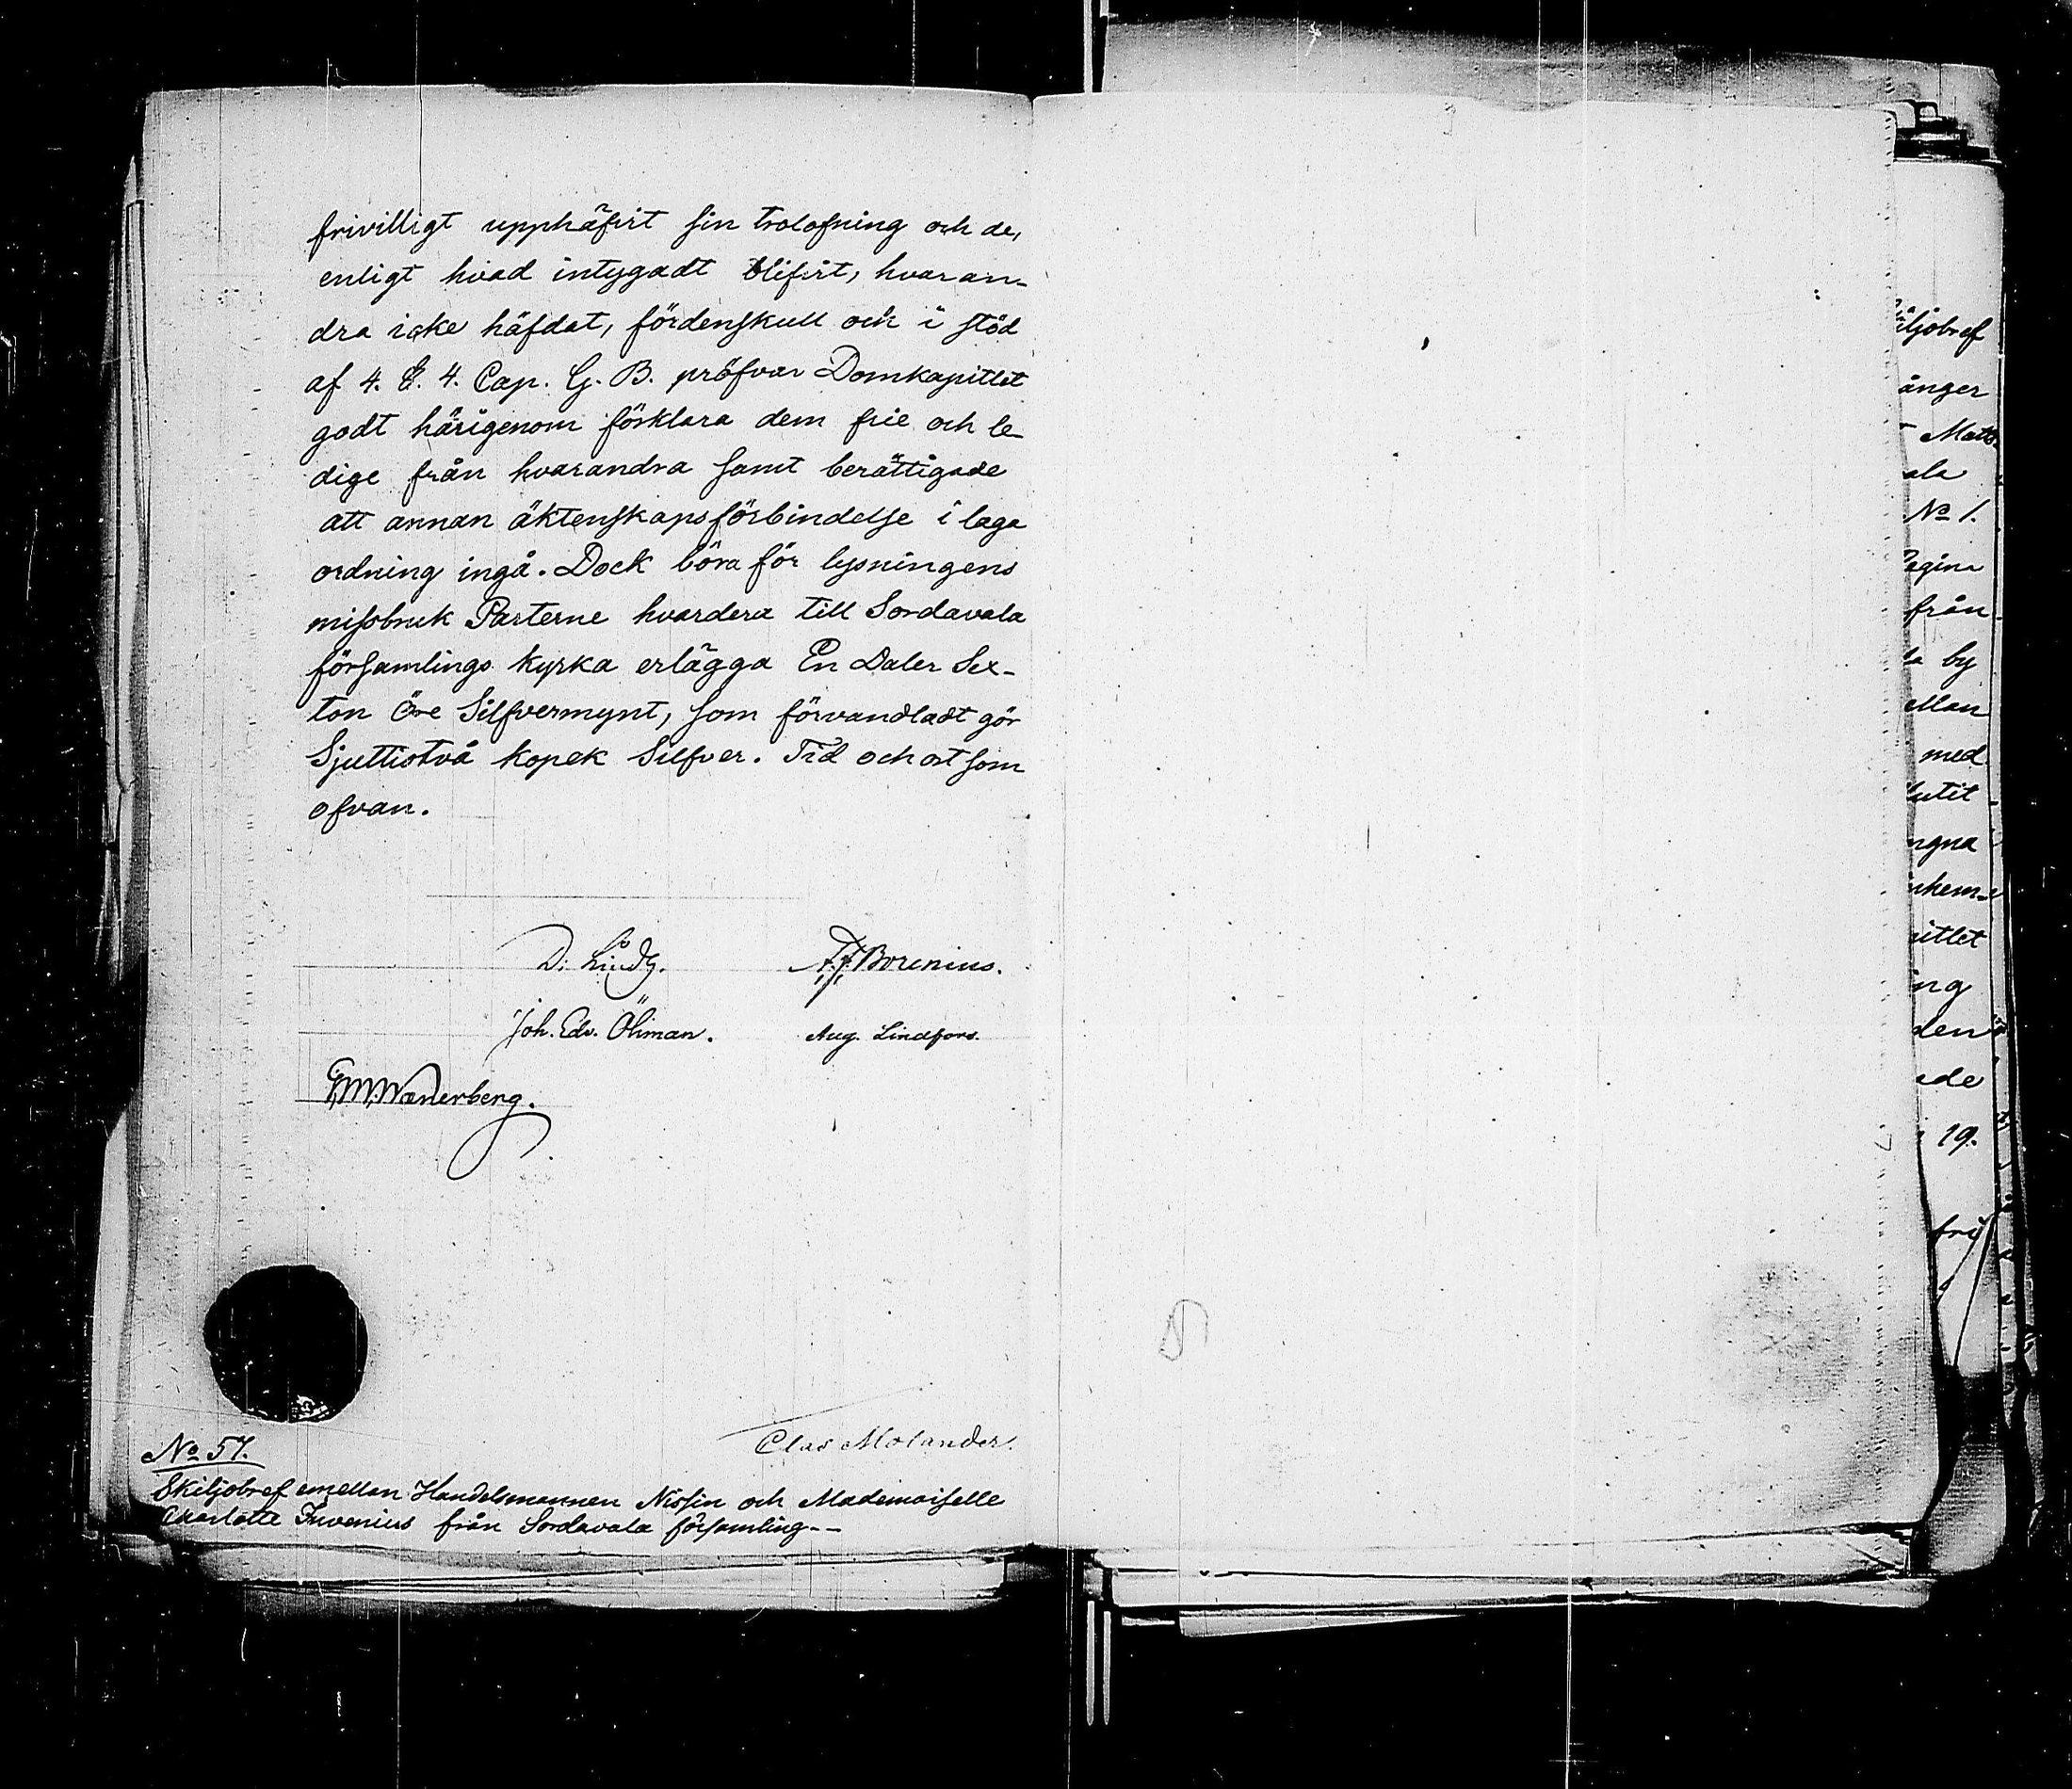 frivilligt upphäfvit sin trolofning och de,
enligt hvad intygadt blifvit, hvaran-
dra icke häfdat, fördenskull och i stöd
af 4. §. 4. Cap. G. B. pröfvar Domkapitlet
godt härigenom förklara dem frie och le-
dige från hvarandra samt berättigade
att annan äktenskapsförbindelse i laga
ordning ingå. Dock böra för lysningens
missbruk Parterne hvardera till Sordavala
församlings kyrka erlägga En Daler Sex-
ton Öre Silfvermynt, som förvandladt gör
Sjuttiotvå kopek Silfver. Tid och ort som
ofvan.
Borenius.
Joh. Edv. Öhman. Aug. Lindfors.
Clas Molander.
No 57.
Skiljobref emellan Handelsmannen Nissin och Mademoiselle
Charlotte Juvenius från Sordavala församling--
ånger
Matts
ala
No 1.
från
by
med
ng
19.